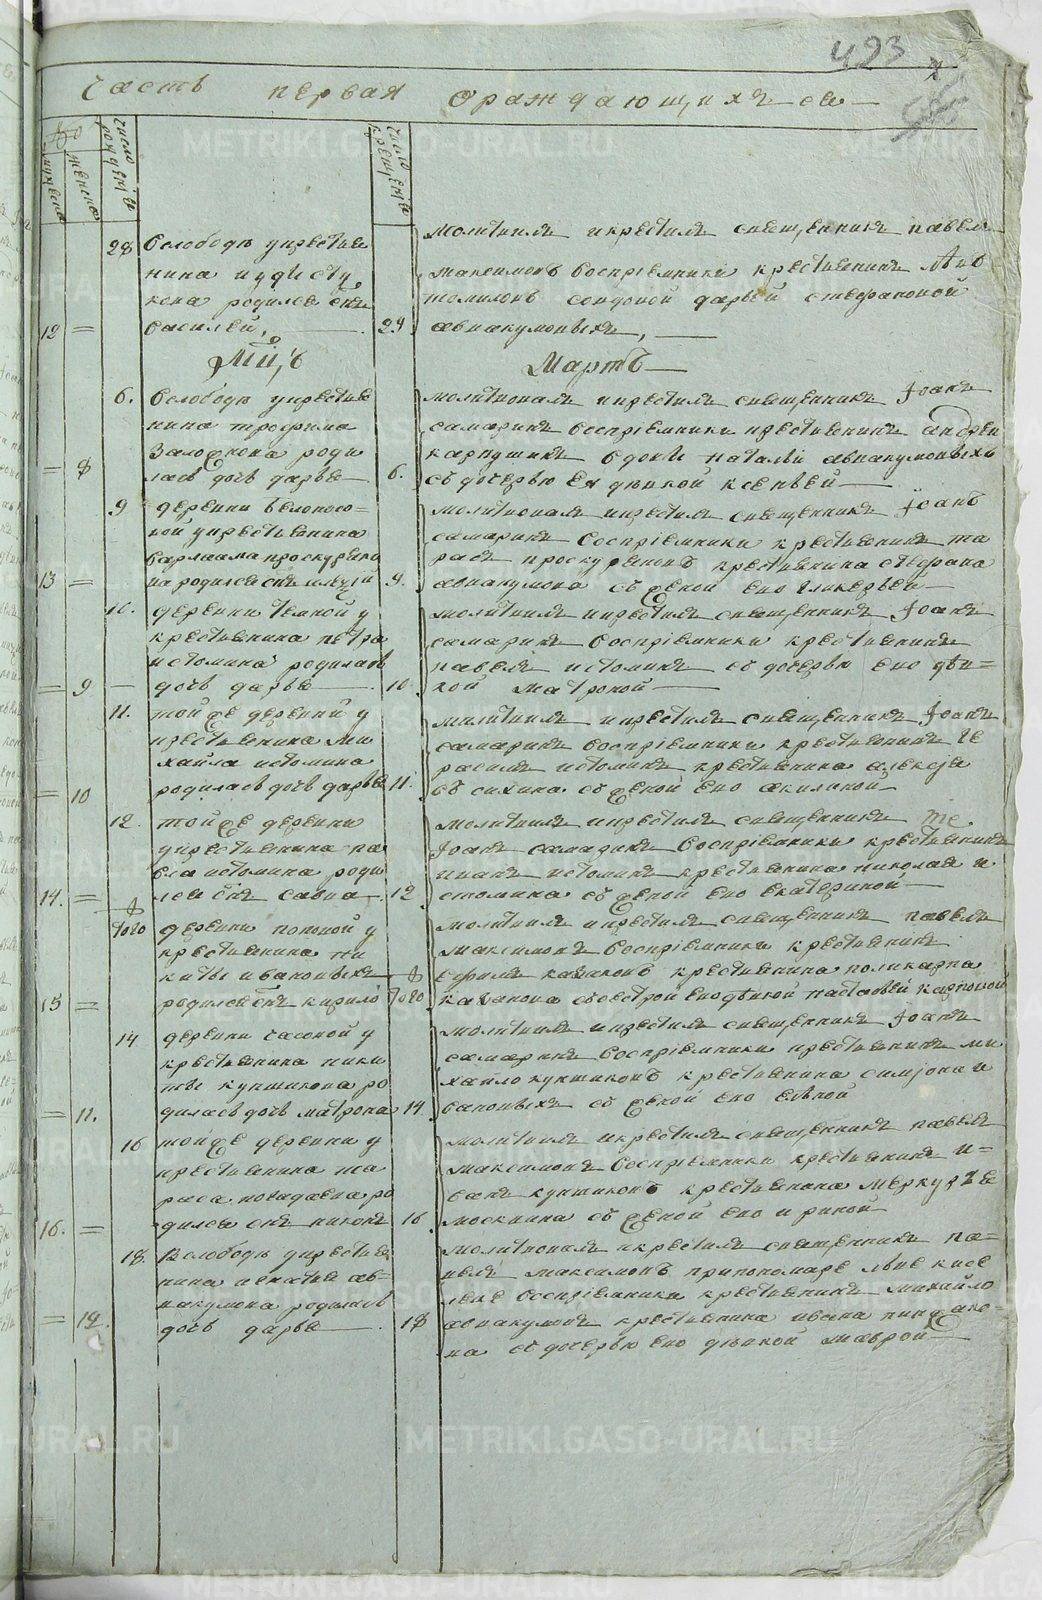 493
часть первая ораждающихъ ся
№
мужеска
женска
число рожденїя
число крещенїя
28 Вслободе укрестья
нина
кова родился снъ
12 = василей, 29
молитвилъ икрестилъ священникъ павелъ
максимовъ восприемники крестьянинъ
томиловъ совдовой дарьей стефановой
авакумовыхъ,
Мцъ Мартъ
6. Вслободе укрестья
нина трофима
роди
= 8 лась дочь дарья 6.
молитвовалъ икрестилъ священникъ Іоанъ
самаринъ восприемники крестьянинъ андреи
карпушинъ вдовы натальи авакумовыхъ
съ дочерью ея девкой ксеньей
9 деревни белоносо=
вой укрестьянина
варлаама проскуряко
13 = ва родился снъ 9.
молитвовалъ икрестилъ священникъ Іоанъ
самаринъ восприемники крестьянинъ та
расъ крестьянина стефана
авакумова съ женой ево гликерьей
10. деревни темной у
крестьянина петра
истомина родилась
= 9 дочь дарья 10.
молитвилъ икрестилъ священникъ Іоанъ
самаринъ восприемники крестьянинъ
павелъ истоминъ съ дочерью ево деви=
кой матроной
11. тойже деревни у
крестьянина ми
хаила истомина
= 10 родилась дочь дарья 11.
молитвилъ икрестилъ священникъ Іоанъ
самаринъ восприемники крестьянинъ ге
расимъ истоминъ крестьянина алексея
съ женой ево акилиной
12. тойже деревни
укрестьянина па
вла истомина роди
14. = лся снъ савва 12
молитвилъ икрестилъ священникъ
Іоанъ самаринъ восприемники крестьянинъ
иванъ истоминъ крестьянина николая и
стомина съ женой ево екатериной
тово деревни поповой у
крестьянина ни
киты ивановыхъ
15 = родился снъ кирило тово
молитвилъ икрестилъ священникъ павелъ
максимовъ восприемники крестьянинъ
ефимъ казаковъ крестьянина поликарпа
казакова съсестрой ево девкой настасьей карповой
14 деревни часовой у
крестьянина ники
ты купшикова ро
= 11. дилась дочь матрона 14.
молитвилъ икрестилъ священникъ Іоанъ
самаринъ восприемники крестьянинъ ми
хайло купшиковъ крестьянина симіона и
вановыхъ съ женой ево
16 тойже деревни у
крестьянина та
раса ро
16. = дился снъ никонъ 16
молитвилъ икрестилъ священникъ павелъ
максимовъ восприемники крестьянинъ и=
ванъ купшиковъ крестьянина меркурье
москвина съ женой ево ириной
18. Вслободе укрестья
нина игнатья ав=
вакумова родилась
= 12. дочь дарья 18
молитвовалъ икрестилъ священникъ па=
велъ максимовъ припономаре льве кисе
леве восприемники крестьянинъ михайло
авакумовъ крестьянина ивана
на съ дочерью ево девкой маврой
METRIKI.GASO-URAL.RU